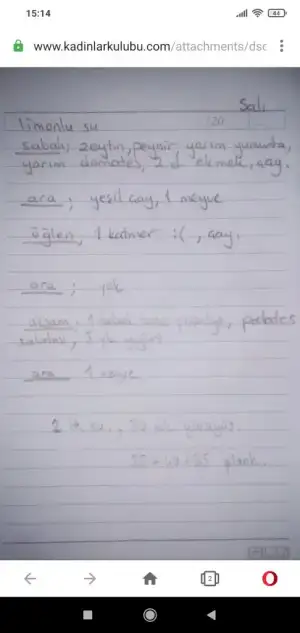 15:14
44
www.kadinlarkulubu.com/attachments/dsc
Salı
limonlu su
sabah; zeytin, peynir yarım yumurta,
yarım domates, 2 d. ekmek, çay.
ara ; yeşil çay, 1 meyve
öğlen, 1 katmer :( , çay.
ara ; yok
akşam; 1 tabak, patates
salatası, 1
ara 1 meyve
2 lt su,
plank.
2